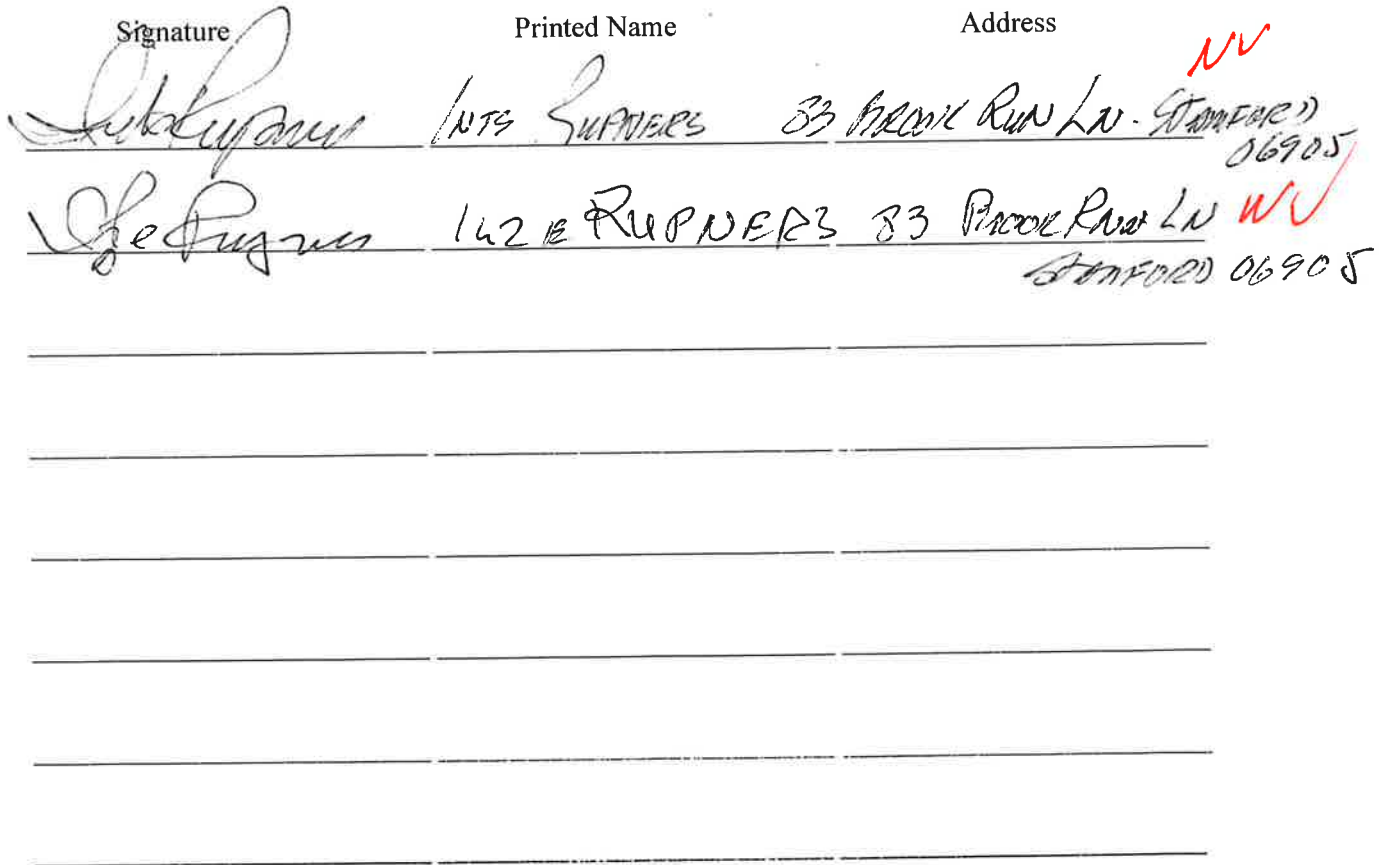 Signature Printed Name Address
NV
INTS RUPNERS 83 BROOK RUN LN. STAMFORD
06905
RUPNERS 83 BROOK RUN LN NV
STAMFORD 06905